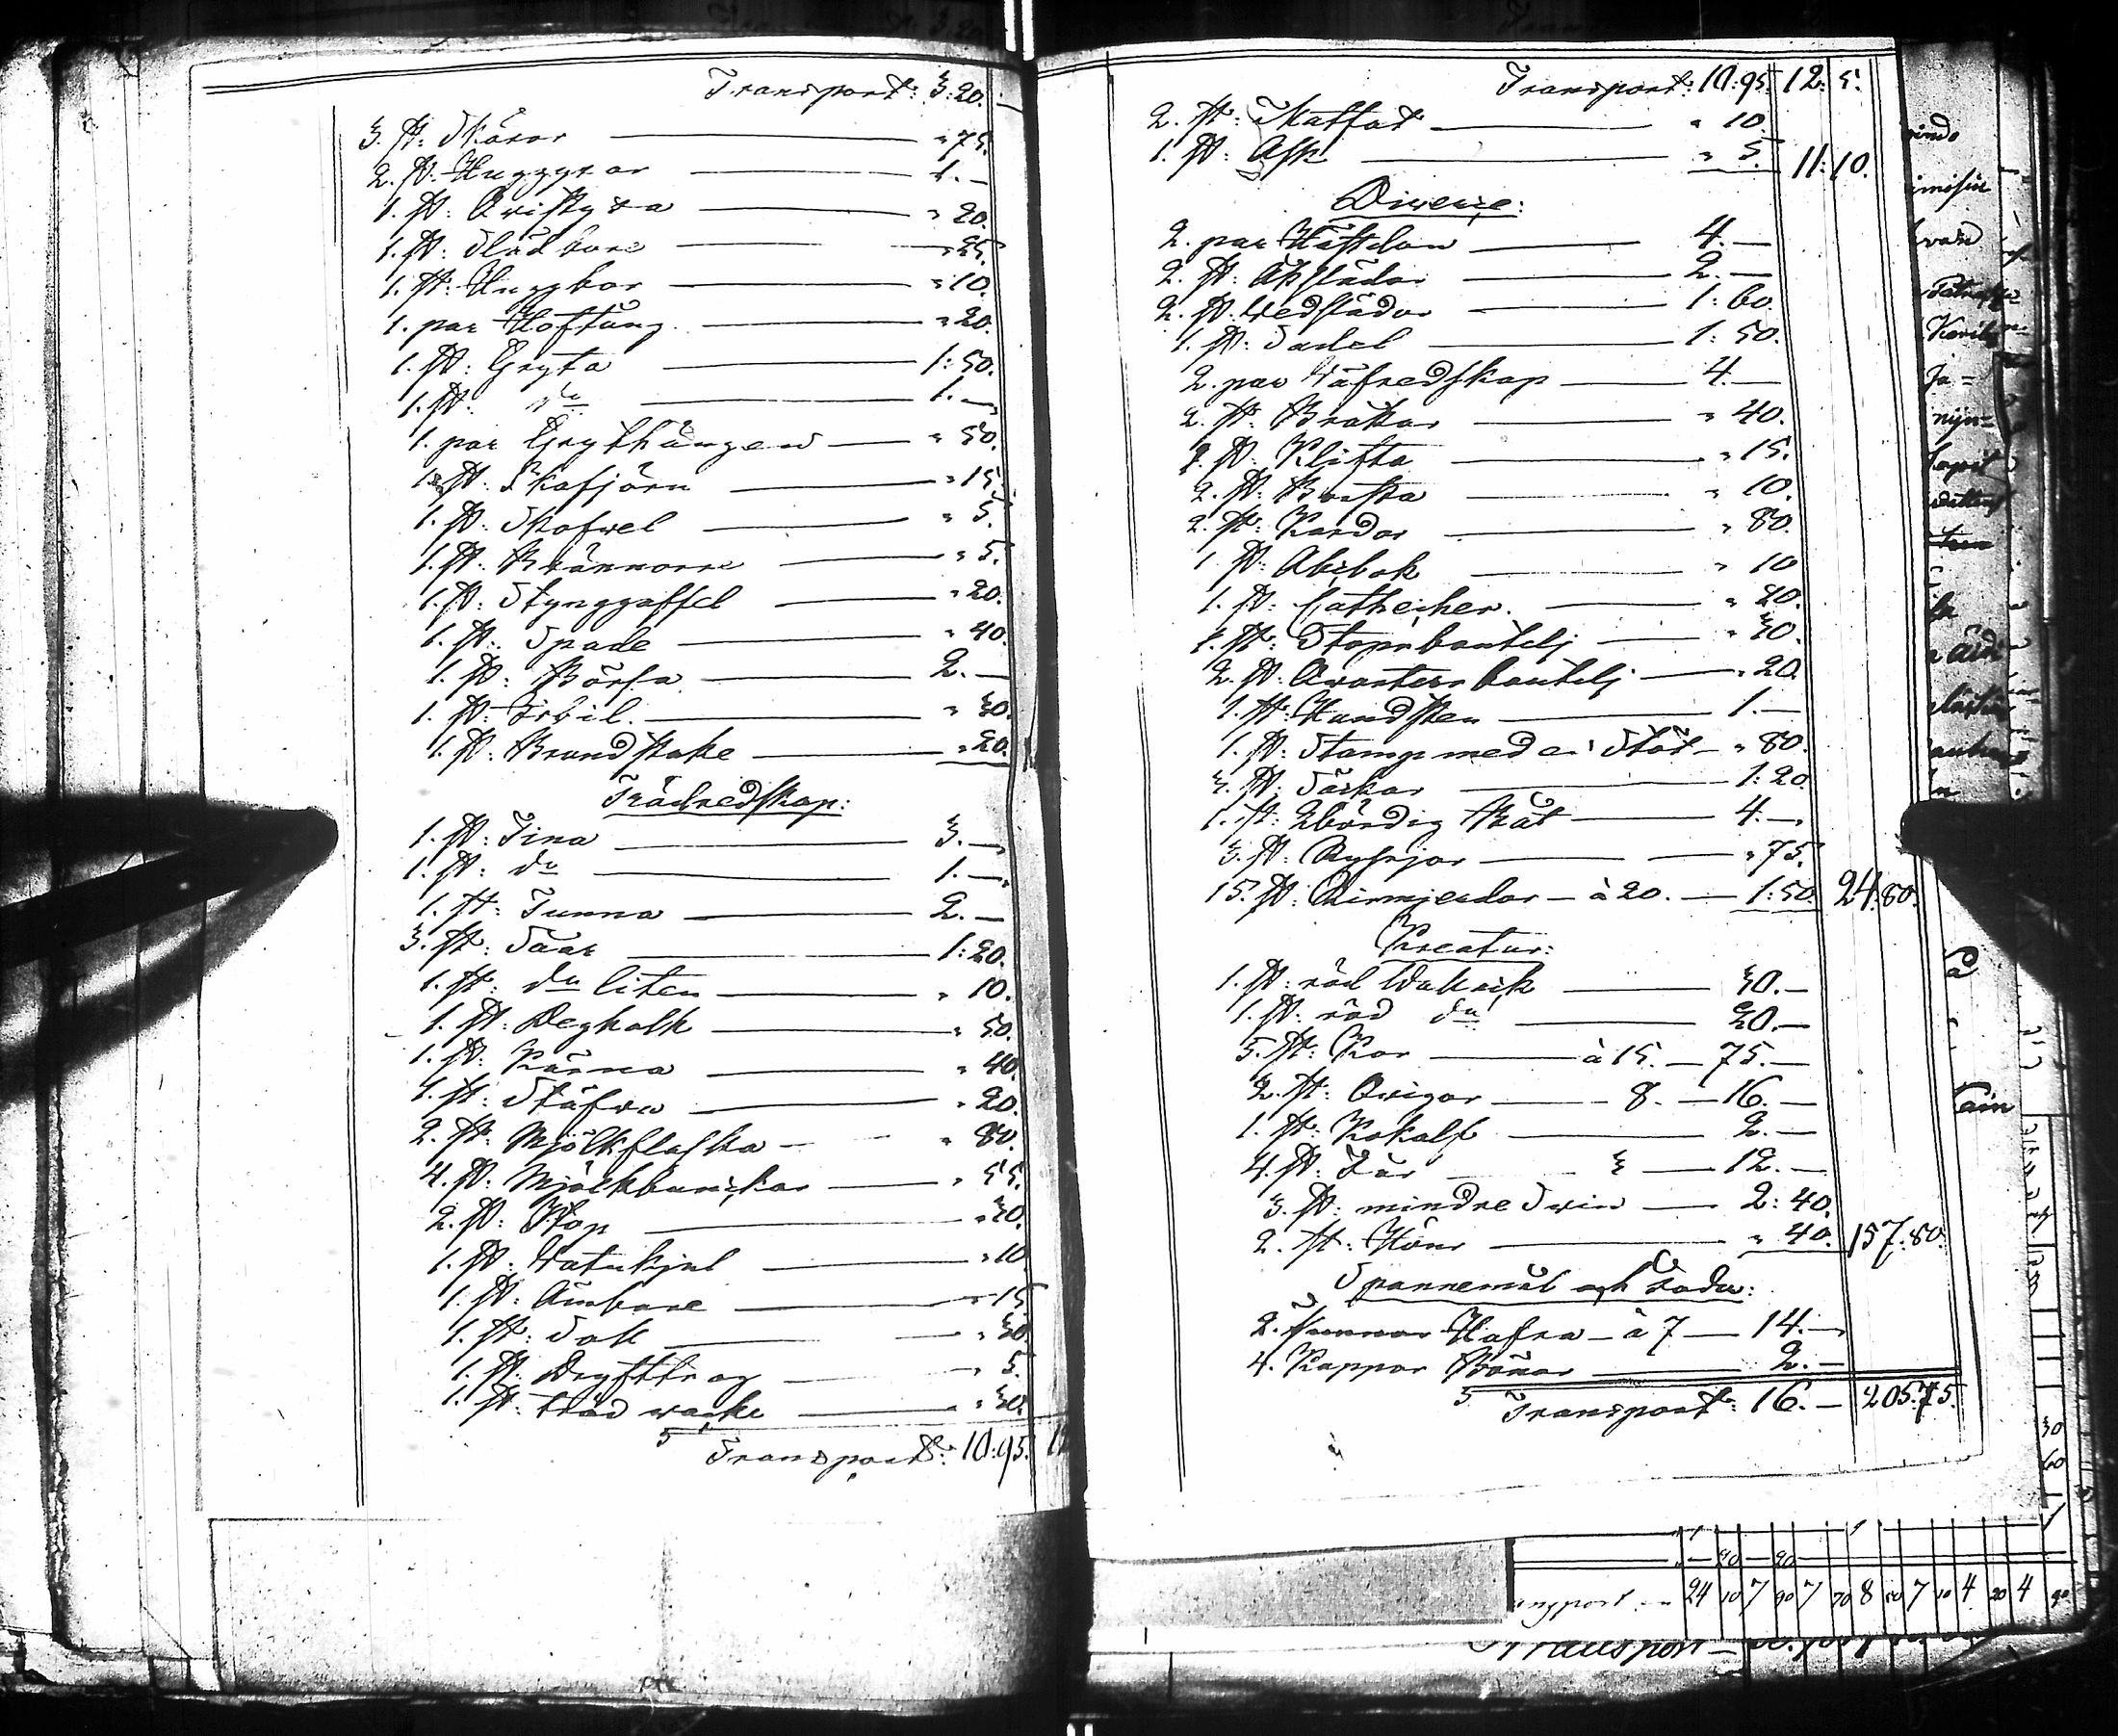 Transport: 3:20.
3. st: Skäror — " 75.
2. st: Huggyxor — 1. —
1. st: Qvistyxa — " 20.
1. st: Slädbore — " 25.
1. st: Huggbor — " 10.
1. par Hoftång — " 20.
1. st: Gryta — 1:50.
1. st: do — 1. —
1. par Grythängen — " 50.
1. st: Skafjärn — " 15.
1. st: Skofvel — " 5.
1. st: Brännare — " 5.
1. st: Stynggaffel — " 20.
1. st: Spade — " 40.
1. st: Börsa — 2. —
1. st: Isbil — " 30.
1. st: Brandstake — " 20.
Trädredskap:
1. st: Tina — 3. —
1. st: do — 1. —
1. st: Tunna — 2. —
3. st: Såar — 1:20.
1. st: do liten — " 10.
1. st: Deghalk — " 50.
1. st: Kärna — " 40.
1. st: Stäfva — " 20.
2. st: Mjölkflaska — " 80.
4. st: Mjölkbunckar — " 55.
2. st: Stop — " 30.
1. st: — " 10
1. st: Ämbare — " 15
1. st: Såll — " 30.
1. st: Dryfttrog — " 5.
1. st: träd — " 30.
Transport: 10:95.
Transport: 10:95. 12: 5.
2. st: Skatfat — " 10.
1. st: Ask — " 5. 11:10.
Diverse:
2. par Häftdon — 4. —
2. st: Åkslädar — 2. —
2. st: Wedslädor — 1:60.
1. st: Sadel — 1:50.
2. par Väfredskap — 4. —
2. st: Bråkor — " 40.
2. st: Klifta — " 15.
2. st: Borsta — " 10.
2. st: Kardor — " 80.
1 st: Abcbok — " 10
1. st: Catheches. — " 20.
1. st: Stopsboutelj — " 30.
2. st: Qvarters boutelj — " 20.
1. st: Handsten — 1. —
1. st: Stamp med en Stöt — " 80.
3. st: Säckar — 1:20.
1. st: 2bördig Båt — 4. —
3. st: Rysjor — " 75.
15. st: — à 20. — 1:50. 24:80.
Kreatur:
1. st: röd Wallack — 30. —
1. st: röd do — 20. —
5. st: Kor — à 15. — 75. —
2. st: Qvigor — 8. — 16. —
1. st: Kokalf — 2. —
4. st: Får — 3 — 12. —
3. st: mindre Svin — 2:40.
2. st: Höns — " 40. 157:80.
Spannemål och
2. Tunnor Hafra — à 7 — 14. —
4. Kappor Bönor — 2. —
Transport: 16. — 205:75.